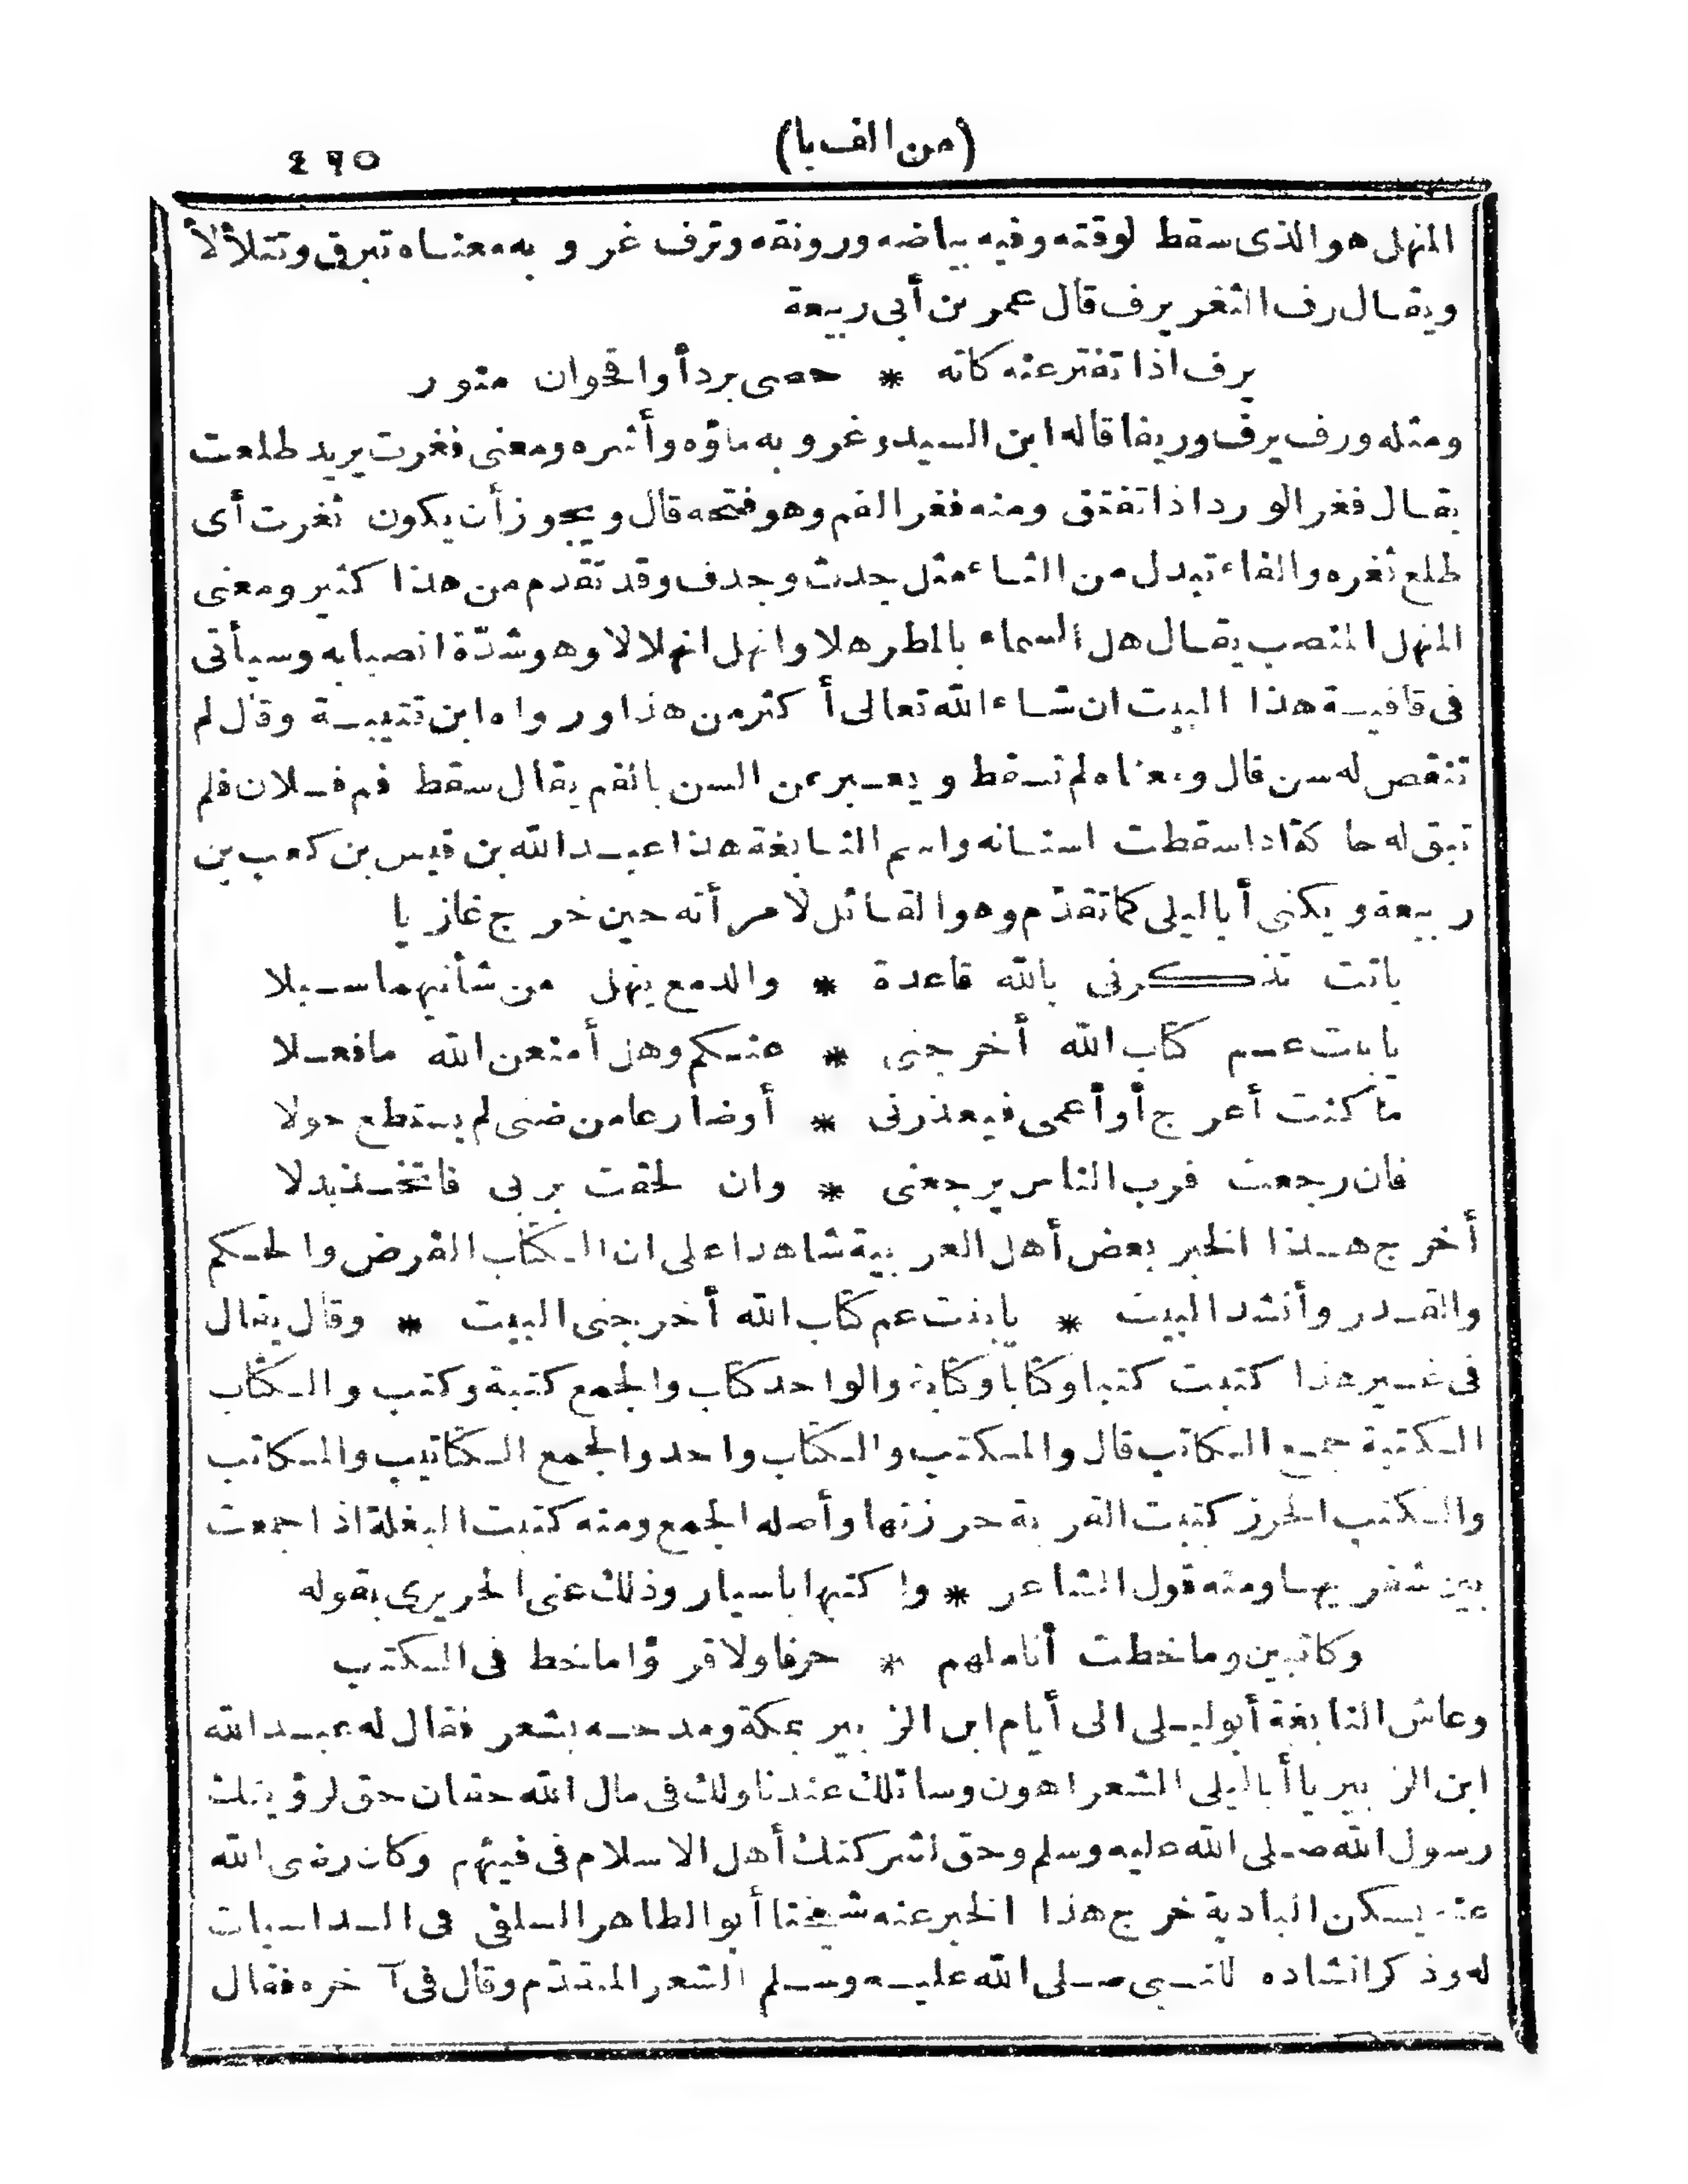 (من الف با)
٤٩٥
المنهل هو الذى سقط لوقته وفيه بياضه ورونقه وترف غر و به معناه تبرق وتتلألأ
ويقال رف الثغر يرف قال عمر بن أبى ربيعة
يرف اذا تفتر عنه كانه * حصى برد أو اقحوان منور
ومثله ورف يرف وريفا قاله ابن السيد وغروبه ماؤه وأشره ومعنى فغرت يريد طلعت
يقال فغر الورد اذا تفتق ومنه فغر الفم وهو فتحه قال ويجوز أن يكون ثغرت أى
طلع ثغره والفاء تبدل من الثاء مثل جدث وجدف وقد تقدم من هذا كثير ومعنى
المنهل المنصب يقال هل السماء بالمطر هلا وانهل انهلالا وهو شدّة انصبابه وسيأتى
فى قافية هذا البيت ان شاء الله تعالى أكثر من هذا ورواه ابن قتيبة وقال لم
تنقص له سن قال ومعناه لم تسقط ويعبر عن السن بالفم يقال سقط فم فلان فلم
تبق له حاكة اذا سقطت اسنانه واسم النابغة هذا عبد الله بن قيس بن كعب بن
ربيعة ويكنى أبا ليلى كما تقدّم وهو القائل لامرأته حين خرج غازيا
باتت تذكرنى بالله قاعدة * والدمع ينهل من شأنيهما سبلا
يا بنت عم كتاب الله أخرجنى * عنكم وهل أمنعن الله ما فعلا
ما كنت أعرج أو أعمى فيعذرنى * أو ضارعا من ضنى لم يستطع حولا
فان رجعت فرب الناس يرجعنى * وان لحقت بربى فاتخذ بدلا
أخرج هذا الخبر بعض أهل العربية شاهدا على ان الكتاب الفرض والحكم
والقدر وأنشد البيت * يا بنت عم كتاب الله أخرجنى البيت * وقال يقال
فى غير هذا كتبت كتبا وكتابا وكتابة والواحد كتاب والجمع كتبة وكتب والكتاب
الكتبة جمع الكاتب قال والمكتب والكتاب واحد والجمع الكتاتيب والمكاتب
والكتب الخرز كتبت القربة خرزتها وأصله الجمع ومنه كتبت البغلة اذا جمعت
بين شفريها ومنه قول الشاعر * واكتبها باسيار وذلك عنى الحريرى بقوله
وكاتبين وما خطت أناملهم * حرفا ولا قرؤا ما خط فى الكتب
وعاش النابغة أبو ليلى الى أيام ابن الزبير بمكة ومدحه بشعر فقال له عبد الله
ابن الزبير يا أبا ليلى الشعر اهون وسائلك عندنا ولك فى مال الله حقان حق لرؤيتك
رسول الله صلى الله عليه وسلم وحق لشركتك أهل الاسلام فى فيئهم وكان رضى الله
عنه يسكن البادية خرج هذا الخبر عنه شيخنا أبو الطاهر السلفى فى السداسيات
له وذكر انشاده للنبى صلى الله عليه وسلم الشعر المتقدّم وقال فى آخره فقال